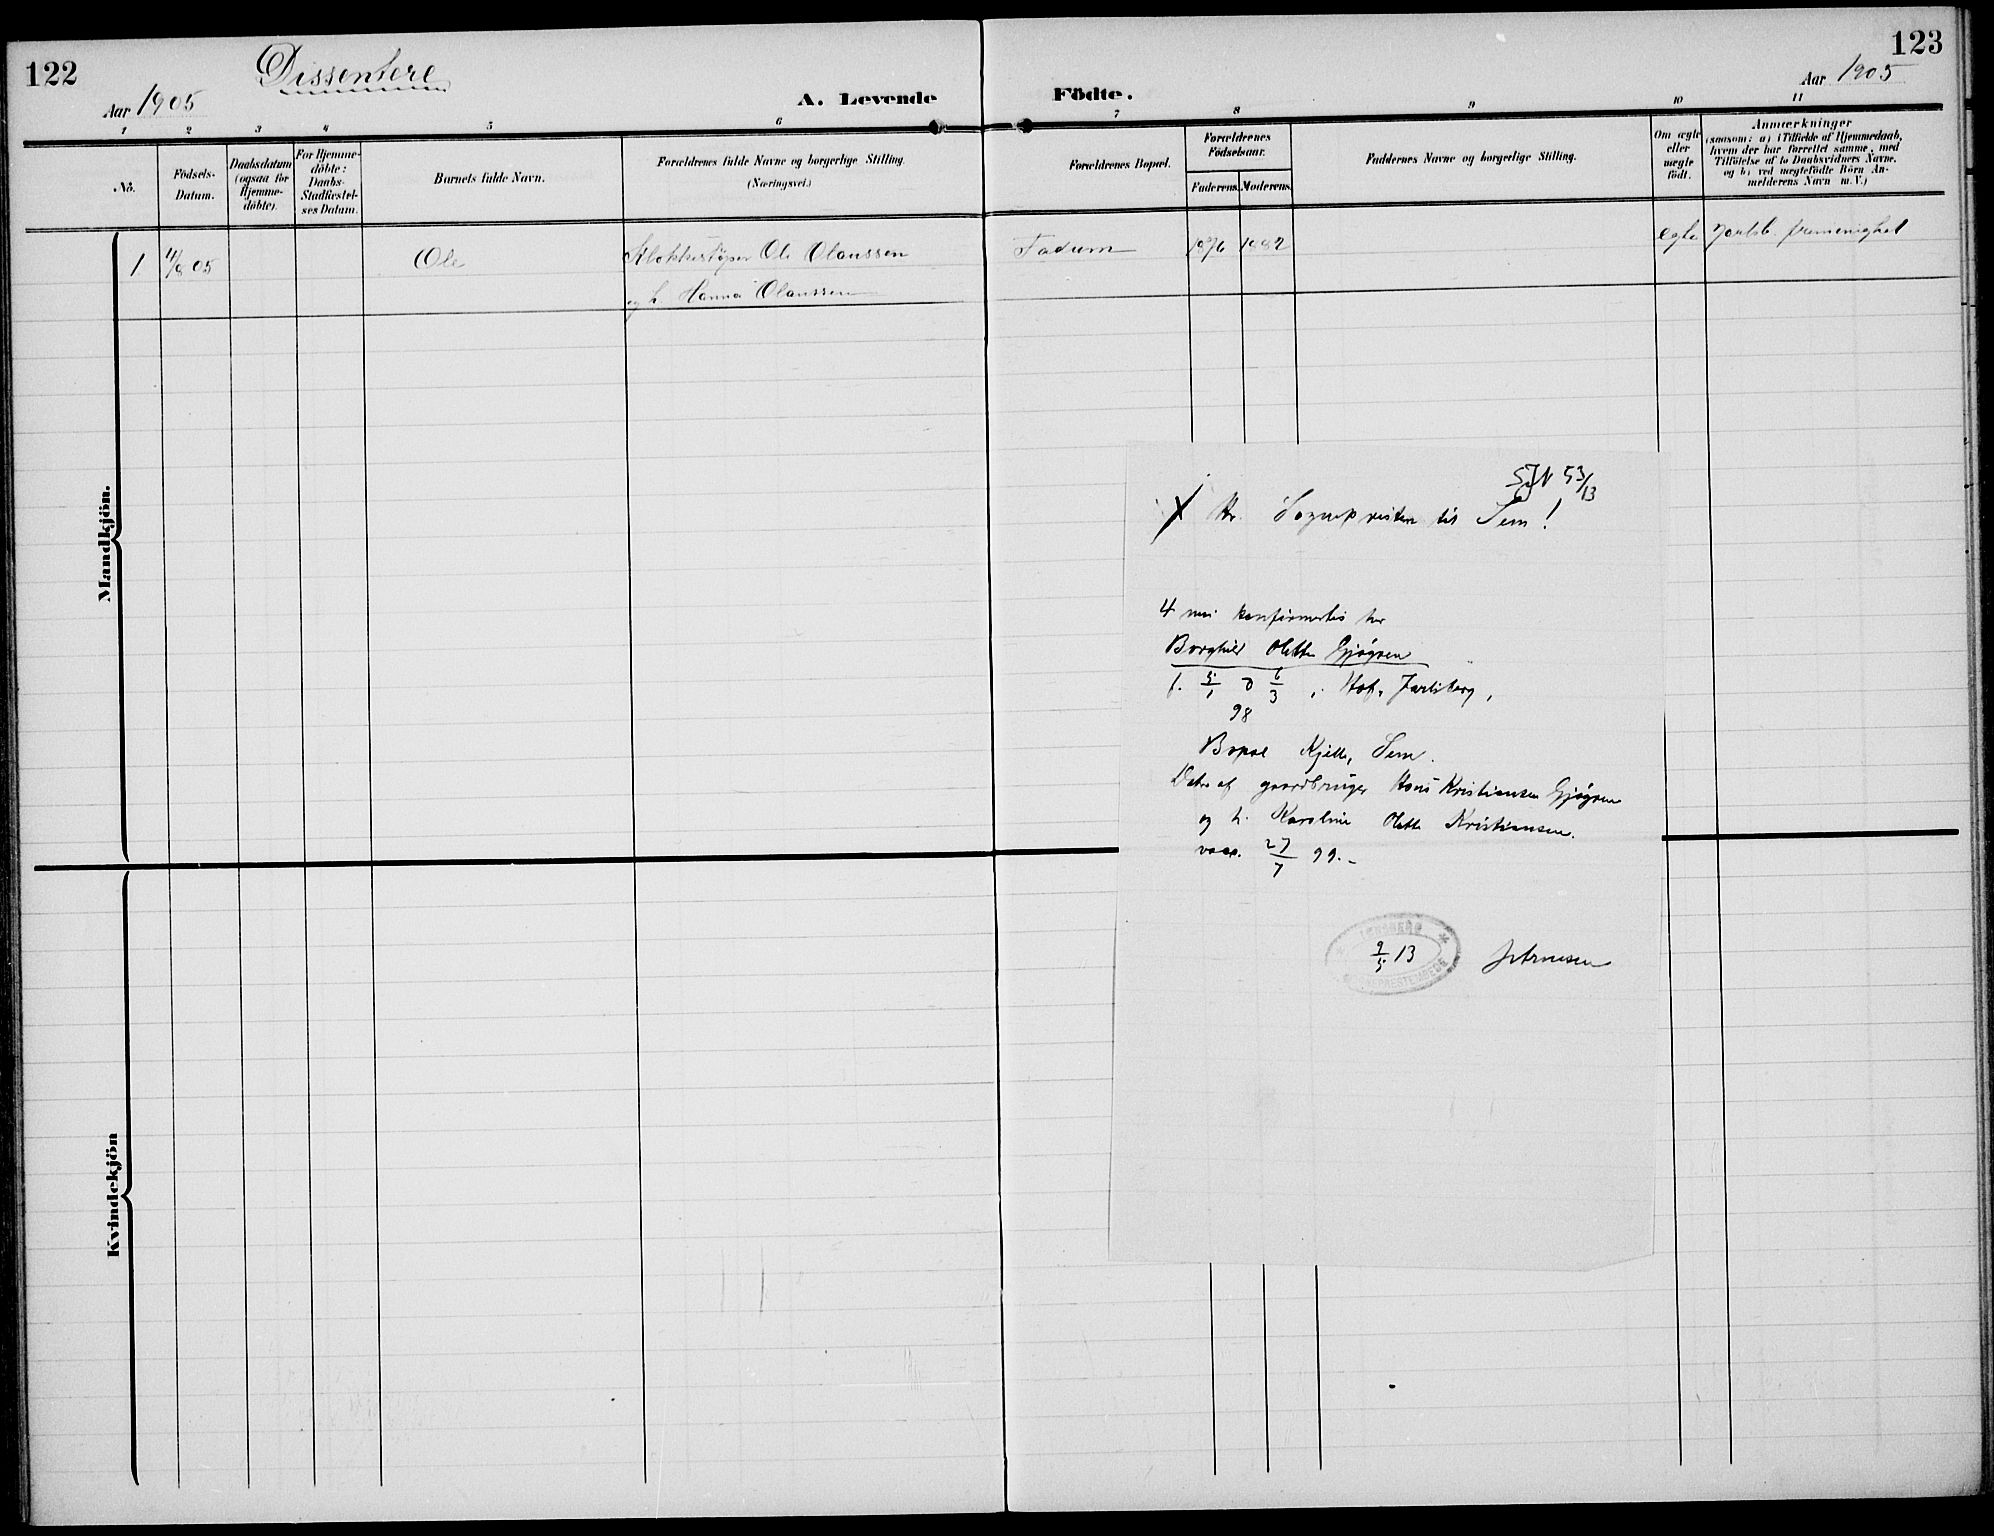 122
Dissentere
Aar 1905
A. Levende Födte.
123
Aar 1905
1 2 3 4 5 6 7 8 9 10 11
No.
Födsels-
Datum.
Daabsdatum
(ogsaa for
Hjemme-
döbte).
For Hjemme-
döbte:
Daabs-
Stadfæstel-
ses Datum.
Barnets fulde Navn.
Forældrenes fulde Navne og borgerlige Stilling.
(Næringsvei.)
Forældrenes Bopæl.
Forældrenes
Födselsaar.
Faderens. Moderens.
Faddernes Navne og borgerlige Stilling.
Om ægte
eller
uægte
födt.
Anmærkninger
(saasom: a) i Tilfælde af Hjemmedaab,
hvem der har forrettet samme, med
Tilföielse af to Daabsvidners Navne.
og b) ved uægtefödte Börn An-
melderens Navn m. V.)
Mandkjön.
1 4/8 05 Ole Klokkestøper Ole Olaussen Fadum 1876 1882 egte Jarlsb. frimenighet
og h. Hanna Olaussen
JN 53/13
Hr. Sognepresten til Sem!
4 mai konfirmertes her
Borghild Olette Gjøgren
f. 5/1 d 6/3 i Hof, Jarlsberg,
98
Bopæl Kjelle, Sem.
Datter af gaardbruger Hans Kristiansen Gjøgren
og h. Karoline Olette Kristiansen.
vacc. 27/7 99.-
TØNSBERG
SOGNEPRESTEMBEDE
9/5 13
Kvindekjön